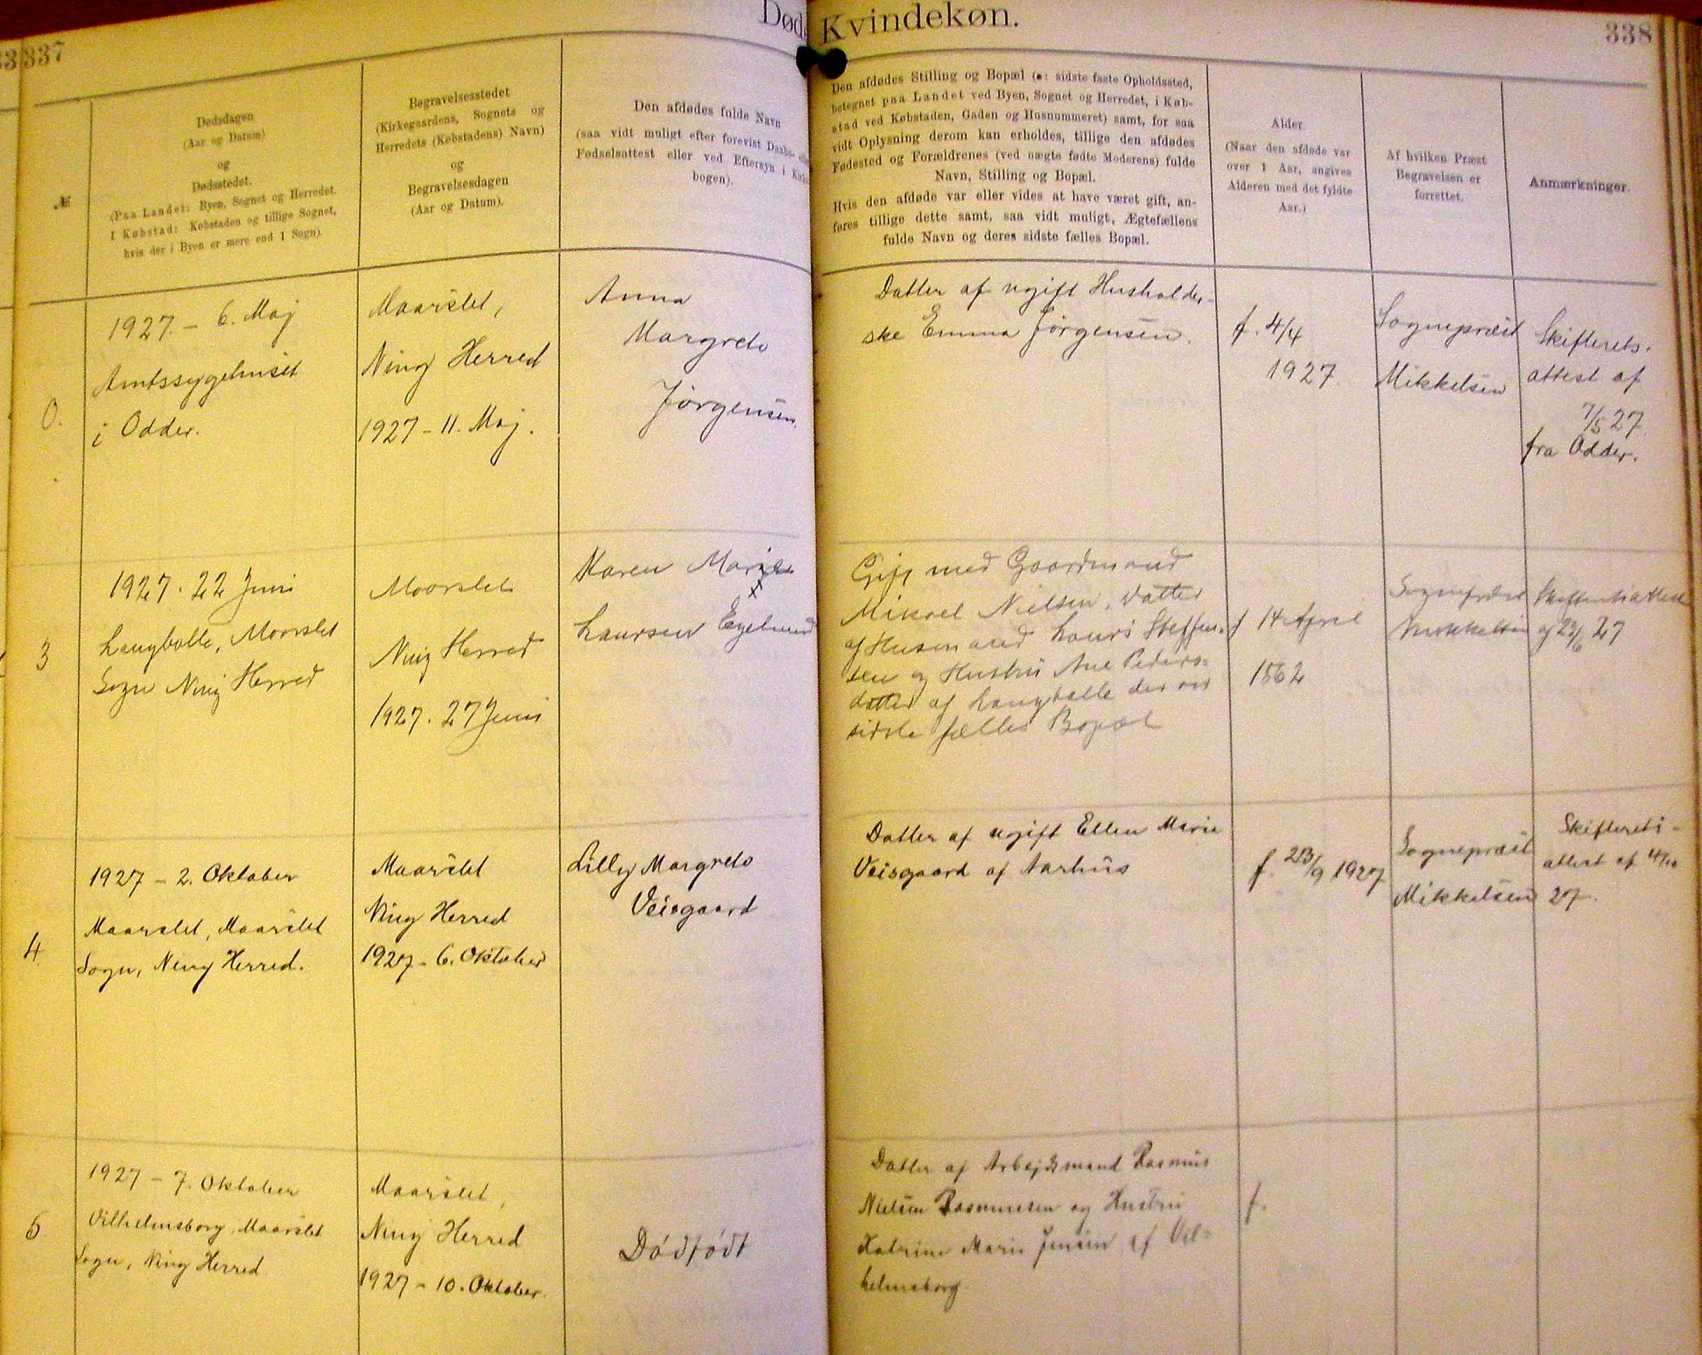 337
Død
Kvindekøn.
338
№
Dødsdagen
(Aar og Datum)
og
Dødsstedet.
(Paa Landet: Byen, Sognet og Herredet.
I Købstad: Købstaden og tillige Sognet,
hvis der i Byen er mere end 1 Sogn).
Begravelsesstedet
(Kirkegaardens, Sognets og
Herredets (Købstadens) Navn)
og
Begravelsesdagen
(Aar og Datum).
Den afdødes fulde Navn
(saa vidt muligt efter forevist Daabs-
Fødselsattest eller ved Eftersyn i
bogen).
Den afdødes Stilling og Bopæl (ɔ: sidste faste Opholdssted,
betegnet paa Landet ved Byen, Sognet og Herredet, i Køb-
stad ved Købstaden, Gaden og Husnummeret) samt, for saa
vidt Oplysning derom kan erholdes, tillige den afdødes
Fødested og Forældrenes (ved uægte fødte Moderens) fulde
Navn, Stilling og Bopæl.
Hvis den afdøde var eller vides at have været gift, an-
føres tillige dette samt, saa vidt muligt, Ægtefællens
fulde Navn og deres sidste fælles Bopæl.
Alder.
(Naar den afdøde var
over 1 Aar, angives
Alderen med det fyldte
Aar.)
Af hvilken Præst
Begravelsen er
forrettet.
Anmærkninger.
0.
1927 – 6. Maj
Amtssygehuset
i Odder.
Maarslet,
Ning Herred
1927 – 11. Maj.
Anna
Margrete
Jørgensen.
Datter af ugift Husholder-
ske Emma Jørgensen.
f. 4/4
1927.
Sognepræst
Mikkelsen
Skifterets-
attest af
7/5 27
fra Odder.
3
1927. 22 Juni
Langballe, Maarslet
Sogn Ning Herred
Maarslet
Ning Herred
1927. 27 Juni
Karen Marie
x
Laursen Egelund
Gift med Gaardmand
Mikael Nielsen, Datter
af Husmand Laurs Steffen-
sen og Hustru Ane Peders-
datter af Langballe der var
sidste fælles Bopæl
f 14 April
1862
Sognepræst
Mikkelsen
Skifteretsattest
af 23/6 27
4
1927 – 2. Oktober
Maarslet, Maarslet
Sogn, Ning Herred.
Maarslet
Ning Herred
1927 – 6. Oktober
Lilly Margrete
Veisgaard
Datter af ugift Ellen Marie
Veisgaard af Aarhus
f. 23/9 1927
Sognepræst
Mikkelsen
Skifterets-
attest af 4/10
27.
5
1927 – 7. Oktober
Vilhelmsborg, Maarslet
Sogn, Ning Herred
Maarslet,
Ning Herred
1927 – 10. Oktober.
Dødfødt
Datter af Arbejdsmand Rasmus
Nielsen Rasmussen og Hustru
Katrine Marie Jensen af Vil-
helmsborg
f.